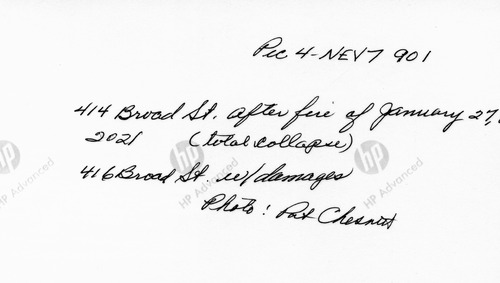 Pic 4-NEV7 901
414 Broad St. after fire of January 27,
2021 (total collapse)
416 Broad St. w/damages
Photo: Pat Chesnut
hp
HP Advanced
hp
HP Advanced
hp
HP Advanced